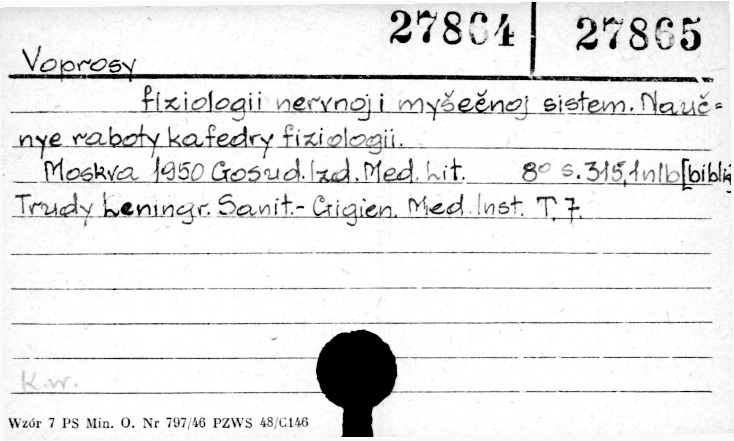 27864 27865
Voprosy
fiziologii nervnoj i myšečnoj sistem. Nauč=
nye raboty kafedry fiziologii.
Moskva 1950 Gosud. Izd. Med. Lit. 8° s. 315, 1 nlb [biblig
Trudy Leningr. Sanit.- Gigien. Med. Inst. T. 7.
K.w.
Wzór 7 PS Min. O. Nr 797/46 PZWS 48/C146